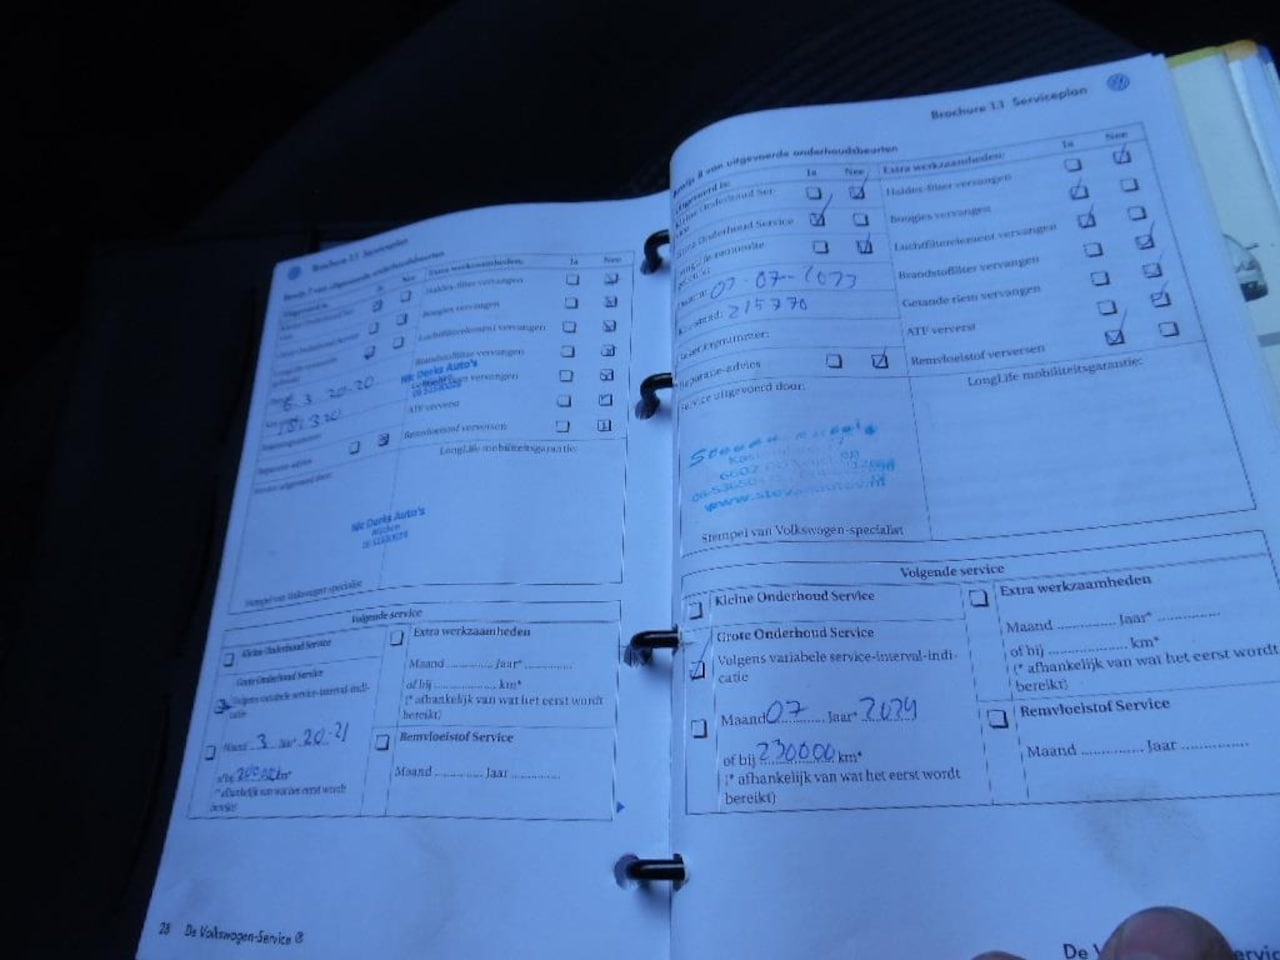 Brochure 1.1 Serviceplan
Bewijs 7 van uitgevoerde onderhoudsbeurten
Uitgevoerd is: Ja Nee
Extra werkzaamheden: Ja Nee
Haldex-filter vervangen
Bougies vervangen
Luchtfilterelement vervangen
Brandstoffilter vervangen
Nic Derks Auto's
vervangen
6.3 20-20
ATF ververst
Remvloeistof verversen
Reparatie-advies
LongLife mobiliteitsgarantie:
Service uitgevoerd door:
Nic Derks Auto's
Stempel van Volkswagen-specialist
Volgende service
Kleine Onderhoud Service
Grote Onderhoud Service
Volgens variabele service-interval-indi-
catie
Maand 3 Jaar* 20-21
of bij km*
(* afhankelijk van wat het eerst wordt
bereikt)
Extra werkzaamheden
Maand .............. Jaar* ..............
of bij .................. km*
(* afhankelijk van wat het eerst wordt
bereikt)
Remvloeistof Service
Maand .............. Jaar ..............
28 De Volkswagen-Service
Brochure 1.1 Serviceplan
Bewijs 8 van uitgevoerde onderhoudsbeurten
Uitgevoerd is: Ja Nee
Kleine Onderhoud Ser-
vice
Grote Onderhoud Service
Datum: 07-07-
215770
Reparatie-advies
Extra werkzaamheden: Ja Nee
Haldex-filter vervangen
Bougies vervangen
Luchtfilterelement vervangen
Brandstoffilter vervangen
Getande riem vervangen
ATF ververst
Remvloeistof verversen
Service uitgevoerd door:
LongLife mobiliteitsgarantie:
Stempel van Volkswagen-specialist
Volgende service
Kleine Onderhoud Service
Grote Onderhoud Service
Volgens variabele service-interval-indi-
catie
Maand 07 Jaar* 2024
of bij 230000 km*
(* afhankelijk van wat het eerst wordt
bereikt)
Extra werkzaamheden
Maand .............. Jaar* ..............
of bij .................. km*
(* afhankelijk van wat het eerst wordt
bereikt)
Remvloeistof Service
Maand .............. Jaar ..............
De V